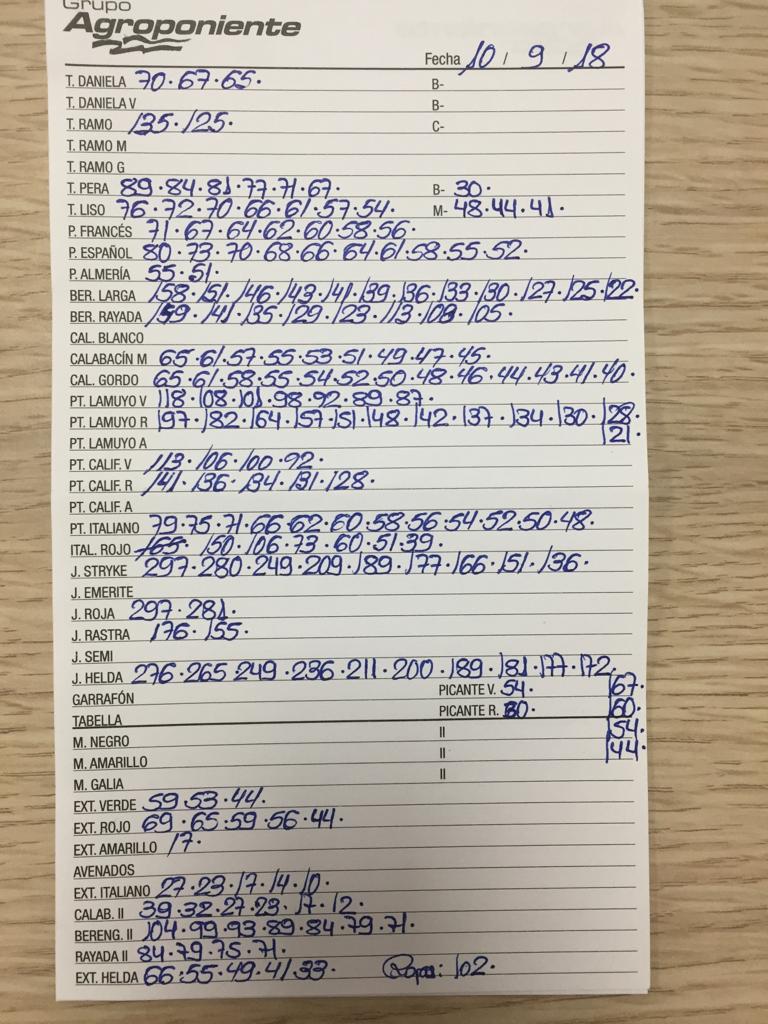 Grupo
Agroponiente
Fecha 10 / 9 / 18
T. DANIELA 70·67·65· B-
T. DANIELA V B-
T. RAMO 135·125· C-
T. RAMO M
T. RAMO G
T. PERA 89·84·81·77·71·67· B- 30·
T. LISO 76·72·70·66·61·57·54· M- 48·44·41·
P. FRANCÉS 71·67·64·62·60·58·56·
P. ESPAÑOL 80·73·70·68·66·64·61·58·55·52·
P. ALMERÍA 55·51·
BER. LARGA 158·151·146·143·141·139·136·133·130·127·125·122·
BER. RAYADA 159·141·135·129·123·113·108·105·
CAL. BLANCO
CALABACÍN M 65·61·57·55·53·51·49·47·45·
CAL. GORDO 65·61·58·55·54·52·50·48·46·44·43·41·40·
PT. LAMUYO V 118·108·101·98·92·89·87·
PT. LAMUYO R 197·182·164·157·151·148·142·137·134·130·128·
PT. LAMUYO A 121·
PT. CALIF. V 113·106·100·92·
PT. CALIF. R 141·136·134·131·128·
PT. CALIF. A
PT. ITALIANO 79·75·71·66·62·60·58·56·54·52·50·48·
ITAL. ROJO 165· 150·106·73·60·51·39·
J. STRYKE 297·280·249·209·189·177·166·151·136·
J. EMERITE
J. ROJA 297·281·
J. RASTRA 176·155·
J. SEMI
J. HELDA 276·265·249·236·211·200·189·181·177·172·
GARRAFÓN PICANTE V. 54· 167·
TABELLA PICANTE R. 80· 160·
M. NEGRO II 154·
M. AMARILLO II 144·
M. GALIA II
EXT. VERDE 59·53·44·
EXT. ROJO 69·65·59·56·44·
EXT. AMARILLO 17·
AVENADOS
EXT. ITALIANO 27·23·17·14·10·
CALAB. II 39·32·27·23·17·12·
BERENG. II 104·99·93·89·84·79·71·
RAYADA II 84·79·75·71·
EXT. HELDA 66·55·49·41·33· 102·